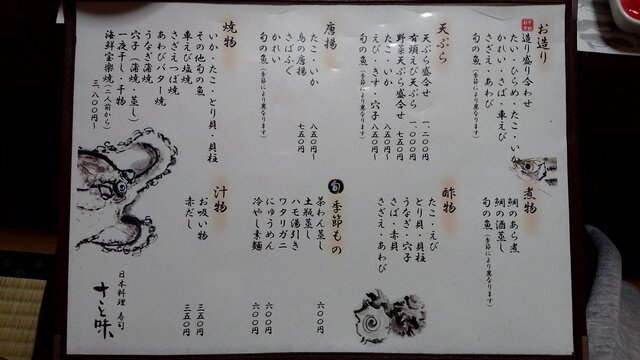 お造り
おすすめ
造り盛り合わせ
たい・ひらめ・たこ・いか
かれい・さば・車えび
さざえ・あわび
旬の魚（季節により異なります）
天ぷら
天ぷら盛合せ 一、二〇〇円
有頭えび天ぷら 一、〇〇〇円
野菜天ぷら盛合せ 七五〇円
たこ・いか 八五〇円～
えび・きす・穴子 八五〇円～
旬の魚（季節により異なります）
唐揚
たこ・いか 八五〇円～
鳥の唐揚 七五〇円
さばふぐ
かれい
旬の魚（季節により異なります）
焼物
いか・たこ・とり貝・貝柱
その他旬の魚
車えび塩焼
さざえつぼ焼
あわびバター焼
うなぎ蒲焼
穴子（蒲焼・蒸し）
一夜干し・干物
海鮮宝楽焼（二人前から）
三、八〇〇円～
煮物
鯛のあら煮
鯛の酒蒸し
旬の魚（季節により異なります）
酢物
たこ・えび
とり貝・貝柱
うなぎ・穴子
さば・赤貝
さざえ・あわび
旬 季節もの
茶わん蒸し 六〇〇円
土瓶蒸し
ハモ湯引き
ワタリガニ
にゅうめん 六〇〇円
冷やし素麺 六〇〇円
汁物
お吸い物 三五〇円
赤だし 三五〇円
日本料理 寿司
さと味